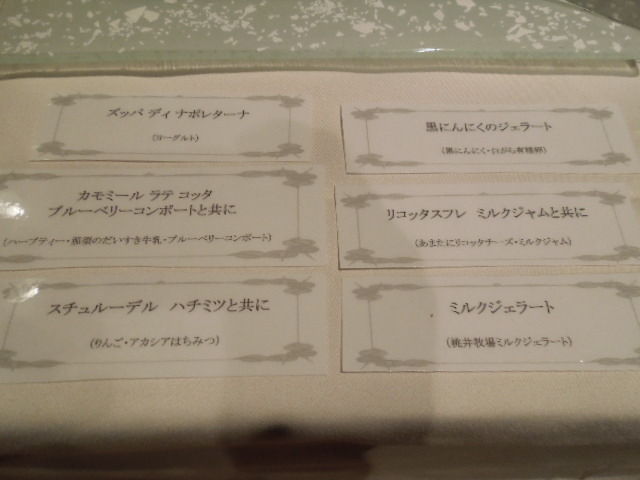 ズッパ ディ ナポレターナ
(ヨーグルト)
カモミール ラテ コッタ
ブルーベリーコンポートと共に
(ハーブティー・那須のだいすき牛乳・ブルーベリーコンポート)
スチュルーデル ハチミツと共に
(りんご・アカシアはちみつ)
黒にんにくのジェラート
(黒にんにく・
リコッタスフレ ミルクジャムと共に
(あまたにリコッタチーズ・ミルクジャム)
ミルクジェラート
(桃井牧場ミルクジェラート)